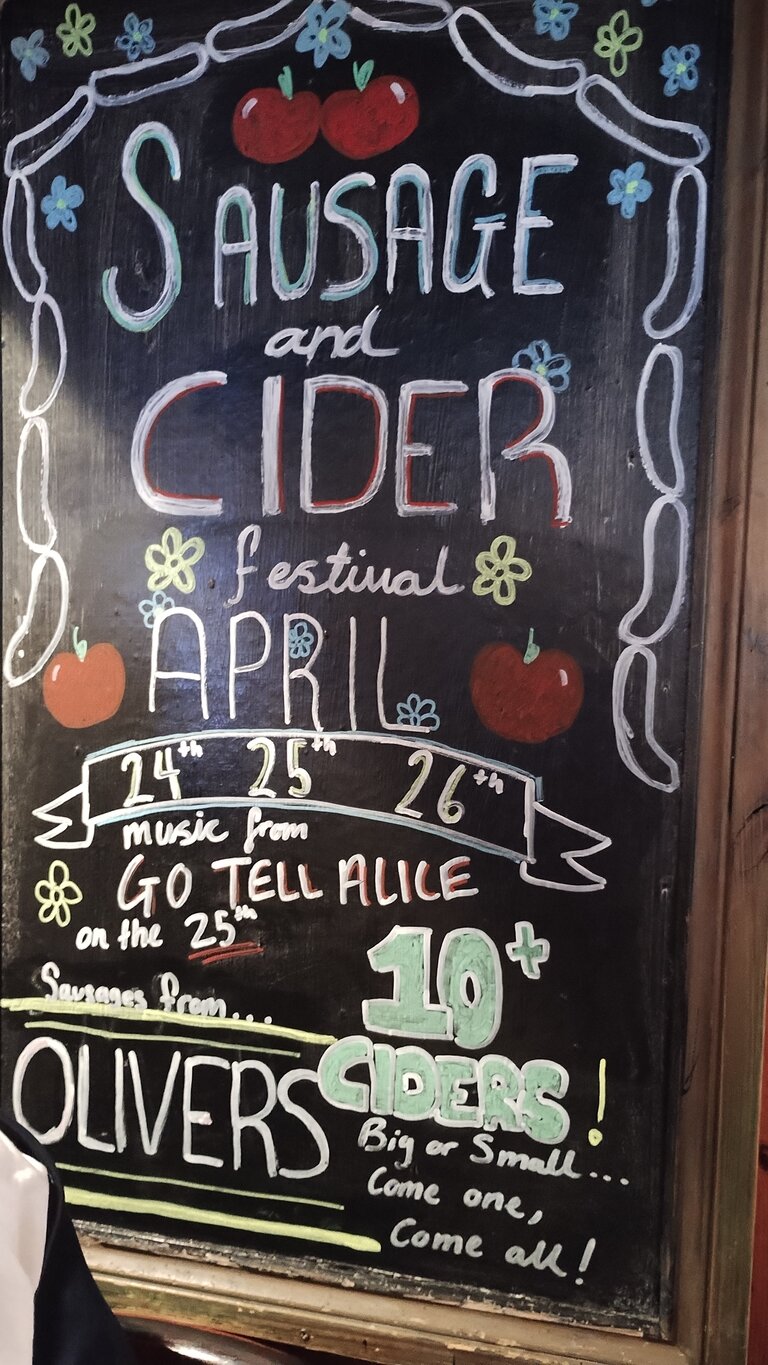 SAUSAGE
and
CIDER
festival
APRIL
24th 25th 26th
music from
GO TELL ALICE
on the 25th
Sausages from...
OLIVERS
10+
CIDERS!
Big or Small...
Come one,
Come all!